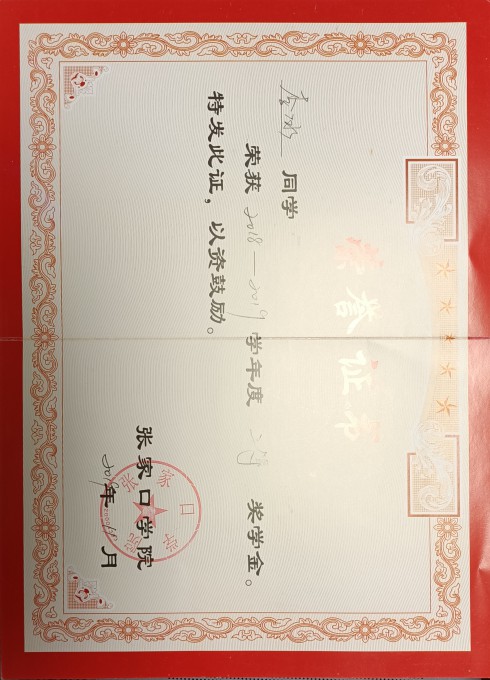 荣誉证书
同学
荣获 2018—2019 学年度 奖学金。
特发此证，以资鼓励。
张家口学院
2019年 月
张家口学院